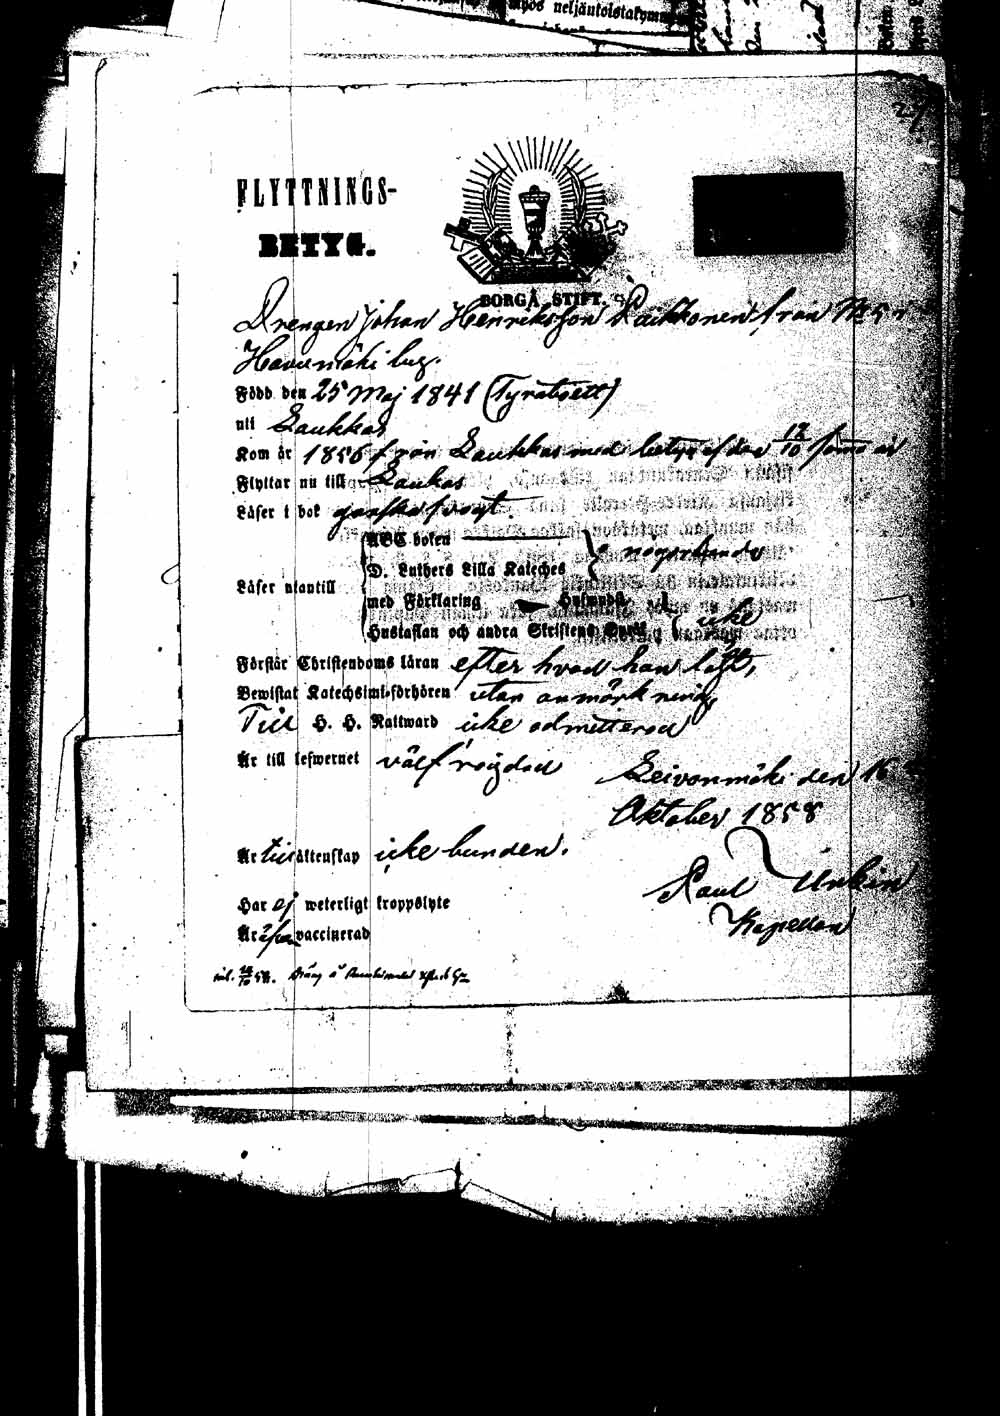 myös neljäntoistakymm
FLYTTNINGS-
BETYG.
BORGÅ STIFT.
Drengen Johan Henriksson Paukkonen från No 5 i
Havumäki by.
Född den 25 Maj 1841
uti Laukkas
Kom år 1856 från Laukkas med betyg af den 12/10 samma år
Flyttar nu till Laukas
Läser i bok ganska svagt.
ABC boken
D. Luthers Lilla Kateches } någorlunda
Läser utantill
med Förklaring
Hustaflan och andra Skriftens Språk } icke
Förstår Christendoms läran efter hvad han läst,
Bewistat Katechsimi-förhören utan anmärkning
Till H. H. Nattward icke admitterad
Är till lefwernet välfrägdad
Leivonmäki den 16
Oktober 1858
Är till äktenskap icke bunden.
Paul
Har ej weterligt kroppslyte
Kapellan
Är vaccinerad